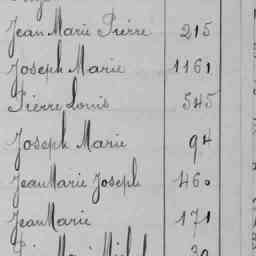 Jean Marie Pierre 215
Joseph Marie 1161
Pierre Louis 545
Joseph Marie 94
Jean Marie Joseph 460
Jean Marie 171
Marie 30